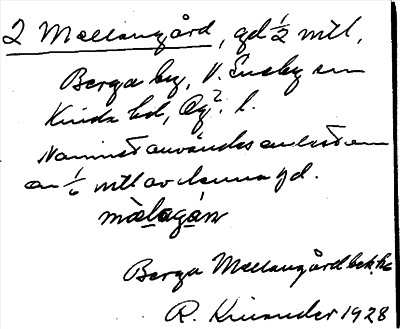 2 Mellangård, gd 1/2 mtl,
Berga by, V. Eneby sn
Kinda hd, Ög. l.
Namnet användes endast om
en 1/6 mtl av denna gd.
mèlagán
Berga Mellangård bek.
R. Kinander 1928